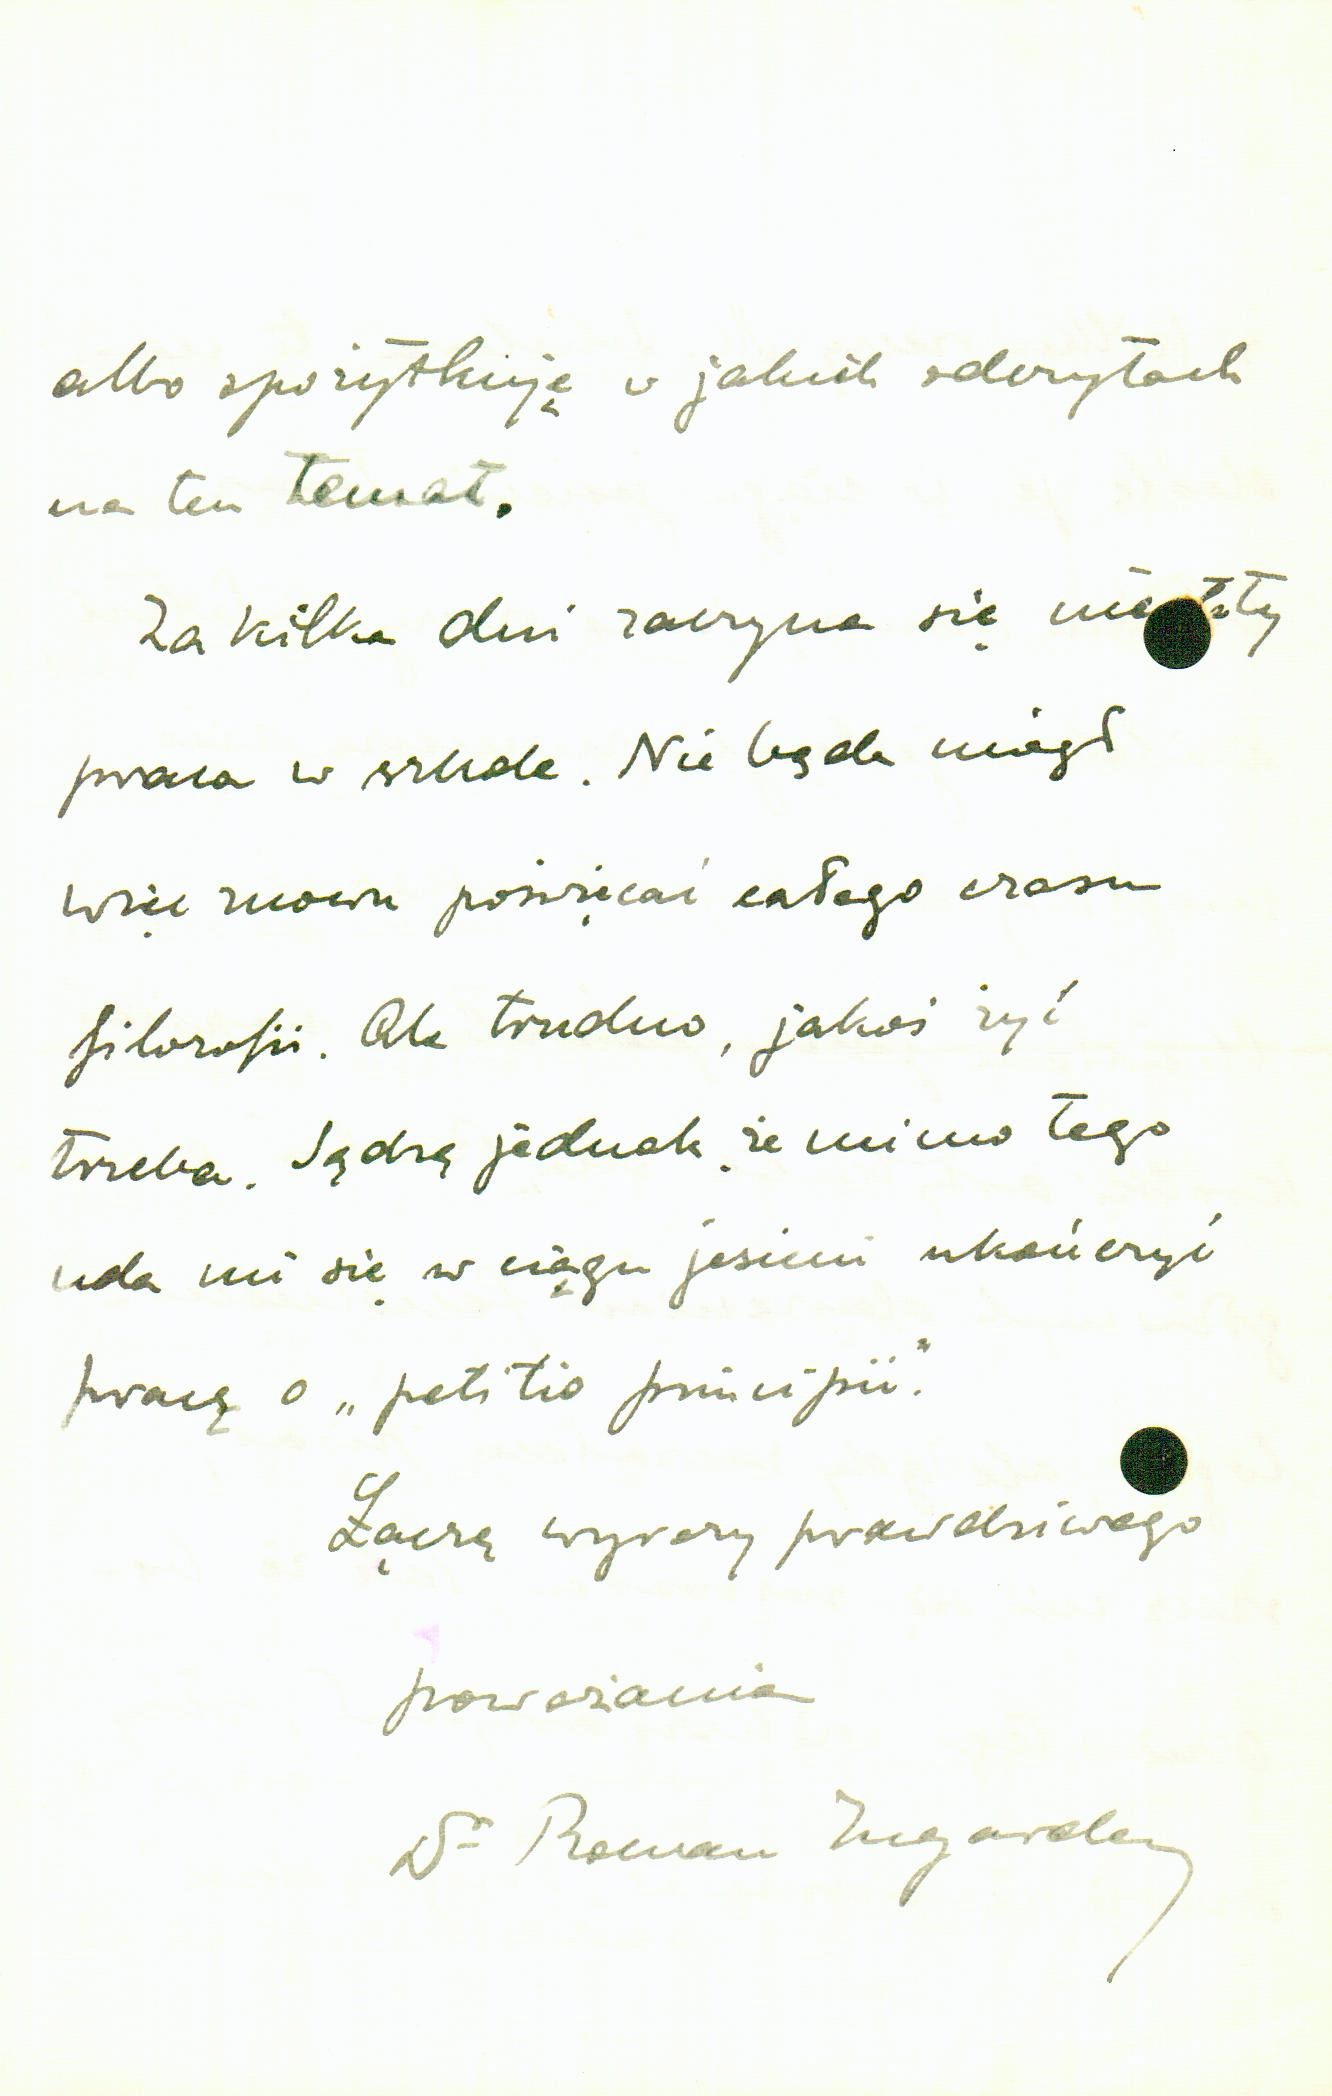 albo spożytkuję w jakich odczytach
na ten temat.
Za kilka dni zaczyna się niestety
praca w szkole. Nie będę mógł
więc znowu poświęcać całego czasu
filozofii. Ale trudno, jakoś żyć
trzeba. Sądzę jednak, że mimo tego
uda mi się w ciągu jesieni ukończyć
pracę o „petitio principii".
Łączę wyrazy prawdziwego
poważania
Dr Roman Ingarden